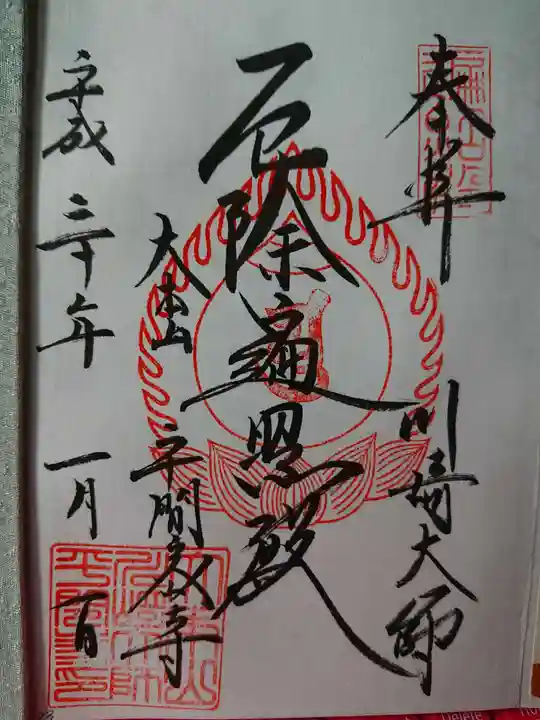 奉拝
川崎大師
厄除遍照殿
大本山
平間寺
平成三十年一月一日